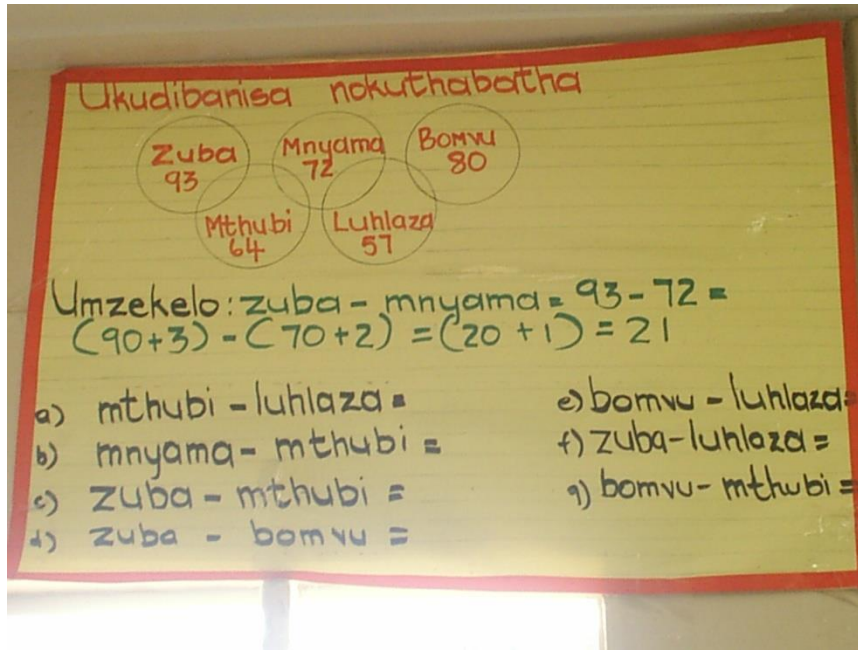 Ukudibanisa nokuthabatha
Zuba Mnyama Bomvu
93 72 80
Mthubi Luhlaza
64 57
Umzekelo: zuba - mnyama = 93 - 72 =
(90+3) - (70+2) = (20 + 1) = 21
a) mthubi - luhlaza =
b) mnyama - mthubi =
c) zuba - mthubi =
d) zuba - bomvu =
e) bomvu - luhlaza =
f) zuba - luhlaza =
g) bomvu - mthubi =